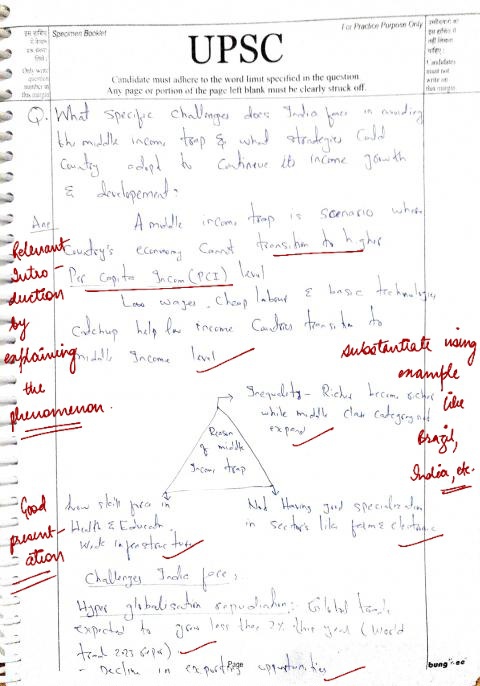 इस हाशिए
में केवल
प्रश्न
लिखें।
Only write
question
number in
this margin
Specimen Booklet
For Practice Purpose Only
UPSC
Candidate must adhere to the word limit specified in the question
Any page or portion of the page left blank must be clearly struck off.
इस हाशिए में
नहीं लिखना
चाहिए।
Candidates
must not
write on
this margin
Q. What specific challenges does India face in avoiding
the middle income trap & what strategies could
Country adopt to continue its income growth
& developement?
Ans A middle income trap is scenario where
Country's economy cannot transition to higher
Per capita Income (PCI) level
Low wages, Cheap labour & basic technologies
Catchup help low income Countries transition to
middle Income level
Relevant
Intro-
duction
by
explaining
the
phenomenon.
substantiate using
example
like
Brazil,
India, etc.
Inequality - Richer become richer
while middle class category not
expand
Reason
of middle
Income trap
Low skill force in
Health & Educati
Weak infrastructure
Not Having good specialization
in sector's like
Good
present-
ation
Challenges India face:
Hyper globalisation repudiation:- Global trade
expected to grow less than 2% this year (World
trad 2023
- Decline in exporting opportunities
Page